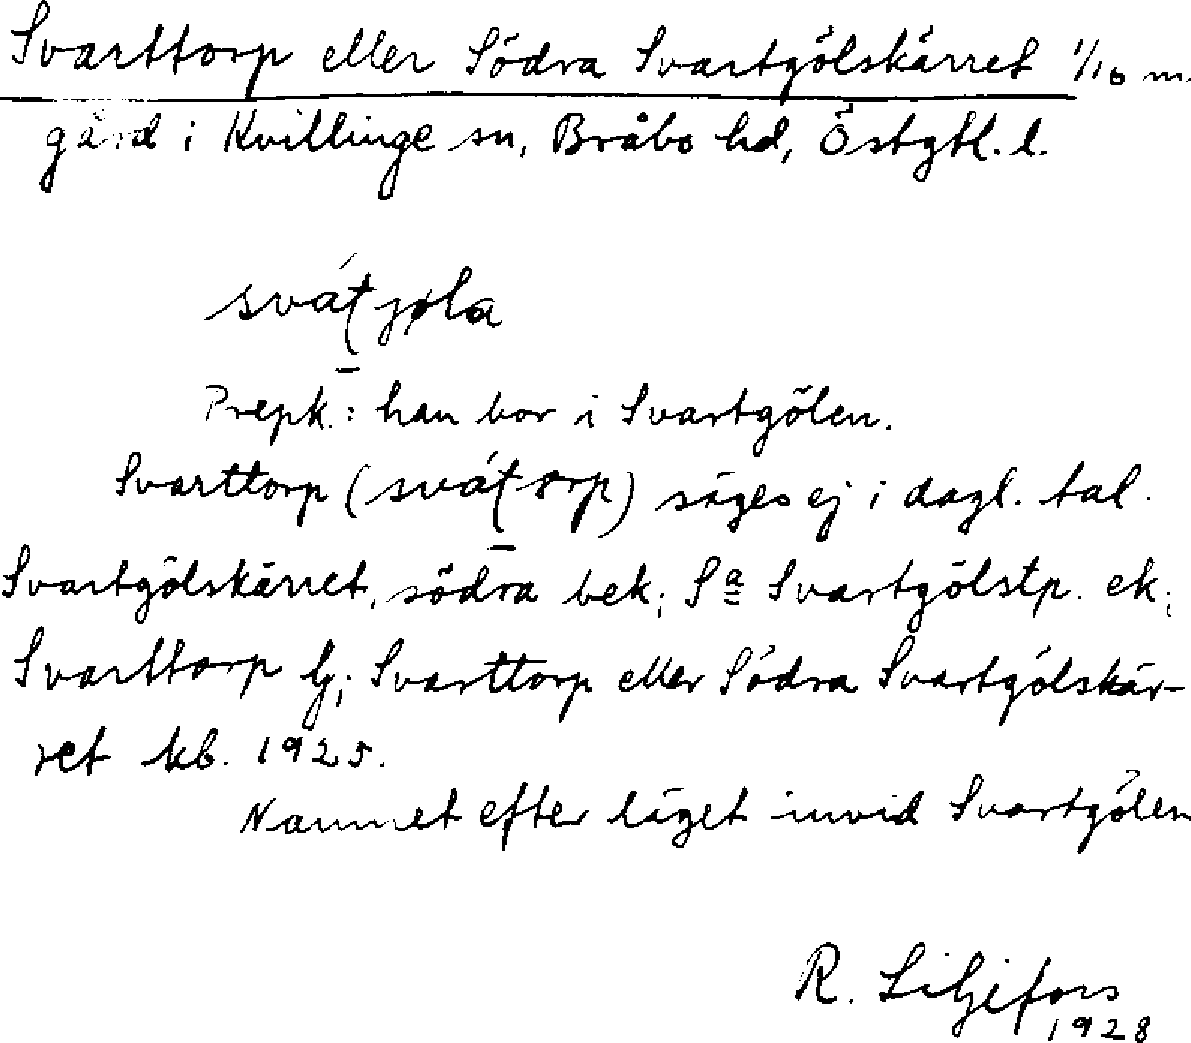 Svarttorp eller Södra Svartgölskärret 1/16 m.
gård i Kvillinge sn, Bråbo hd, Östgtl. l.
svátjøla
Prepk.: han bor i Svartgölen.
Svarttorp (svátorp) säges ej i dagl. tal.
Svartgölskärret, södra bek; Sa Svartgölstp. ek;
Svarttorp lj; Svarttorp eller Södra Svartgölskär-
ret kb. 1925.
Namnet efter läget invid Svartgölen
R. Liljefors
1928